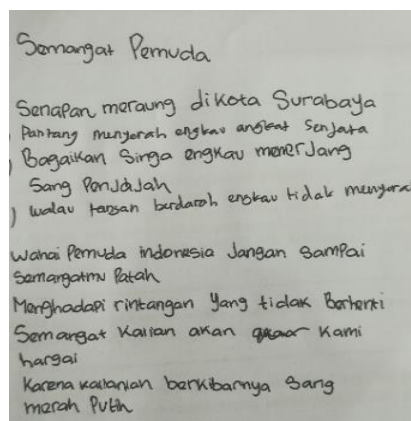 Semangat Pemuda
Senapan meraung dikota Surabaya
Pantang menyerah engkau angkat Senjata
Bagaikan Singa engkau menerjang
Sang Penjajah
walau tangan berdarah engkau tidak menyera
wahai Pemuda indonesia Jangan Sampai
Semangatmu Patah
Menghadapi rintangan Yang tidak Berhenti
Semangat Kalian akan Kami
hargai
Karena kalianlah berkibarnya Sang
merah Putih